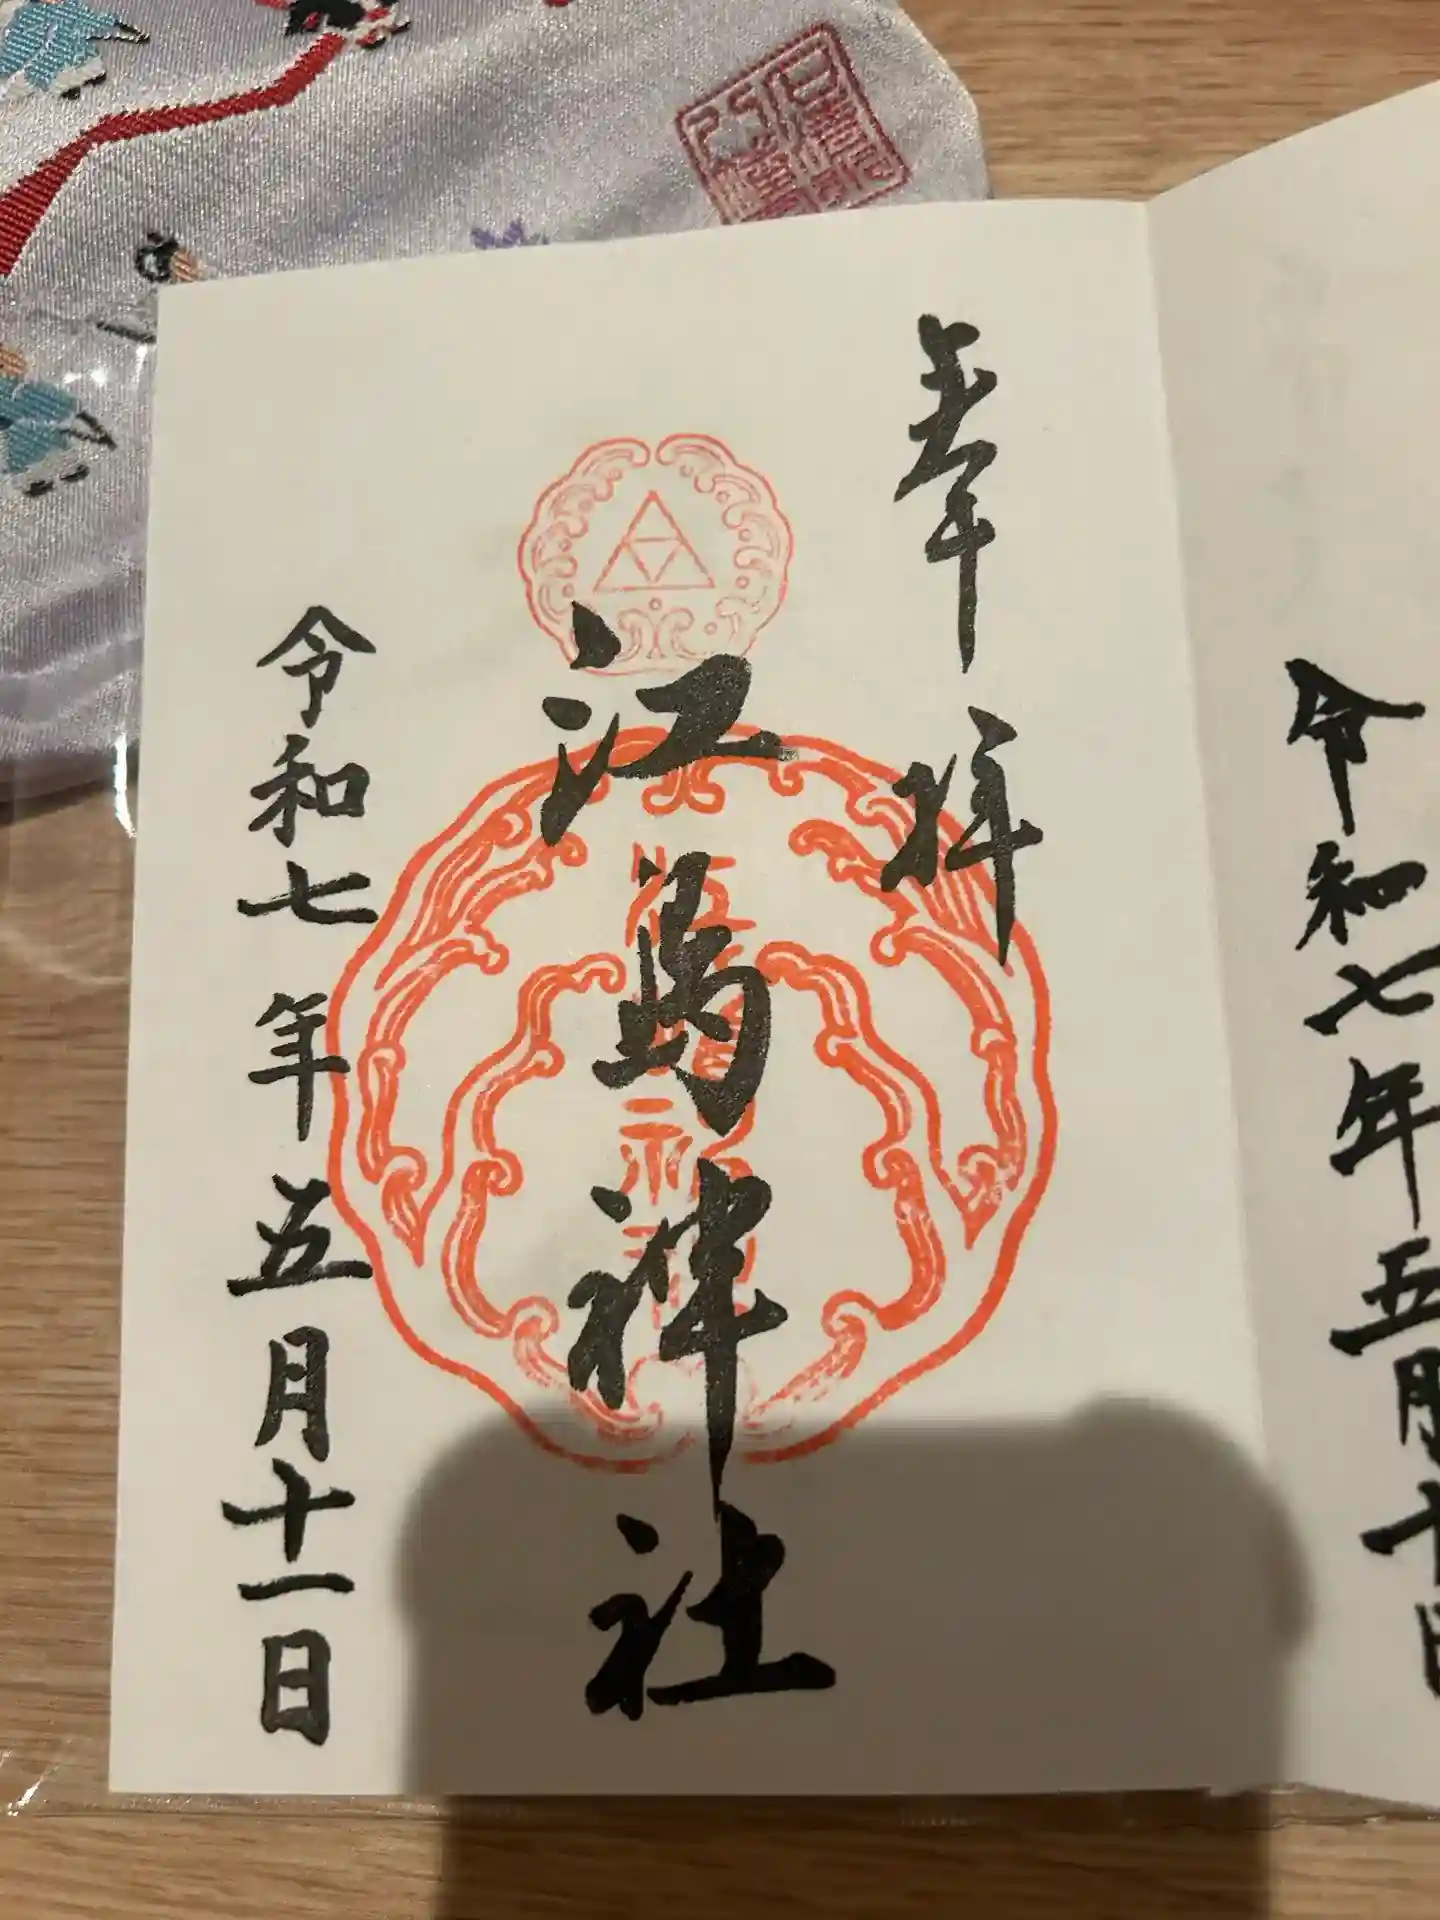 令和七年五月十日
奉拝
江島神社
令和七年五月十一日